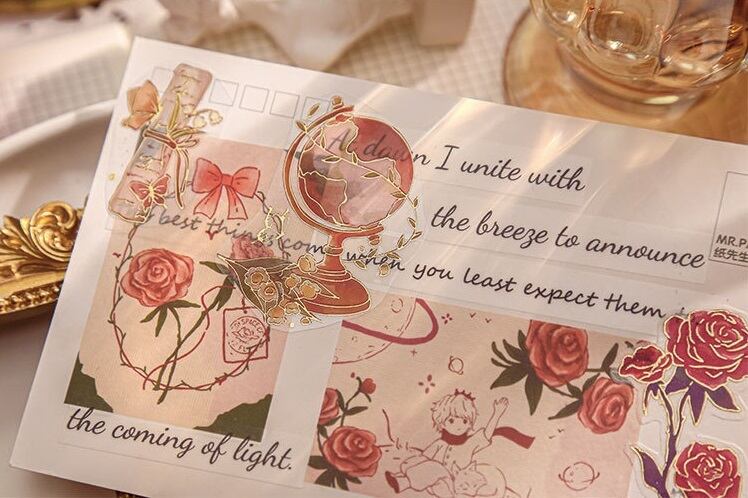 At dawn I unite with
the breeze to announce
best things come when you least expect them
the coming of light.
MR.P
纸先生